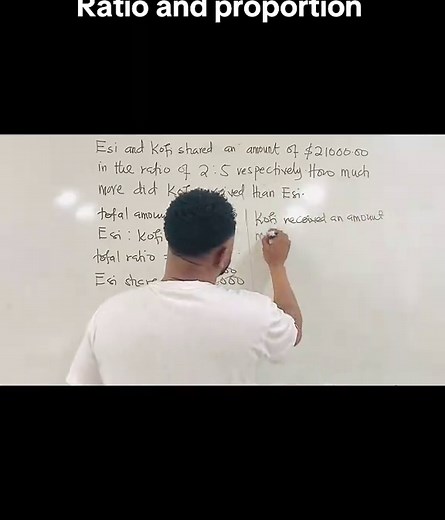 Ratio and proportion
Esi and Kofi shared an amount of $21000.00
in the ratio of 2:5 respectively How much
more did Kofi received than Esi.
total amou
Esi : Kofi
total ratio =
Esi share
000
Kofi received an amount